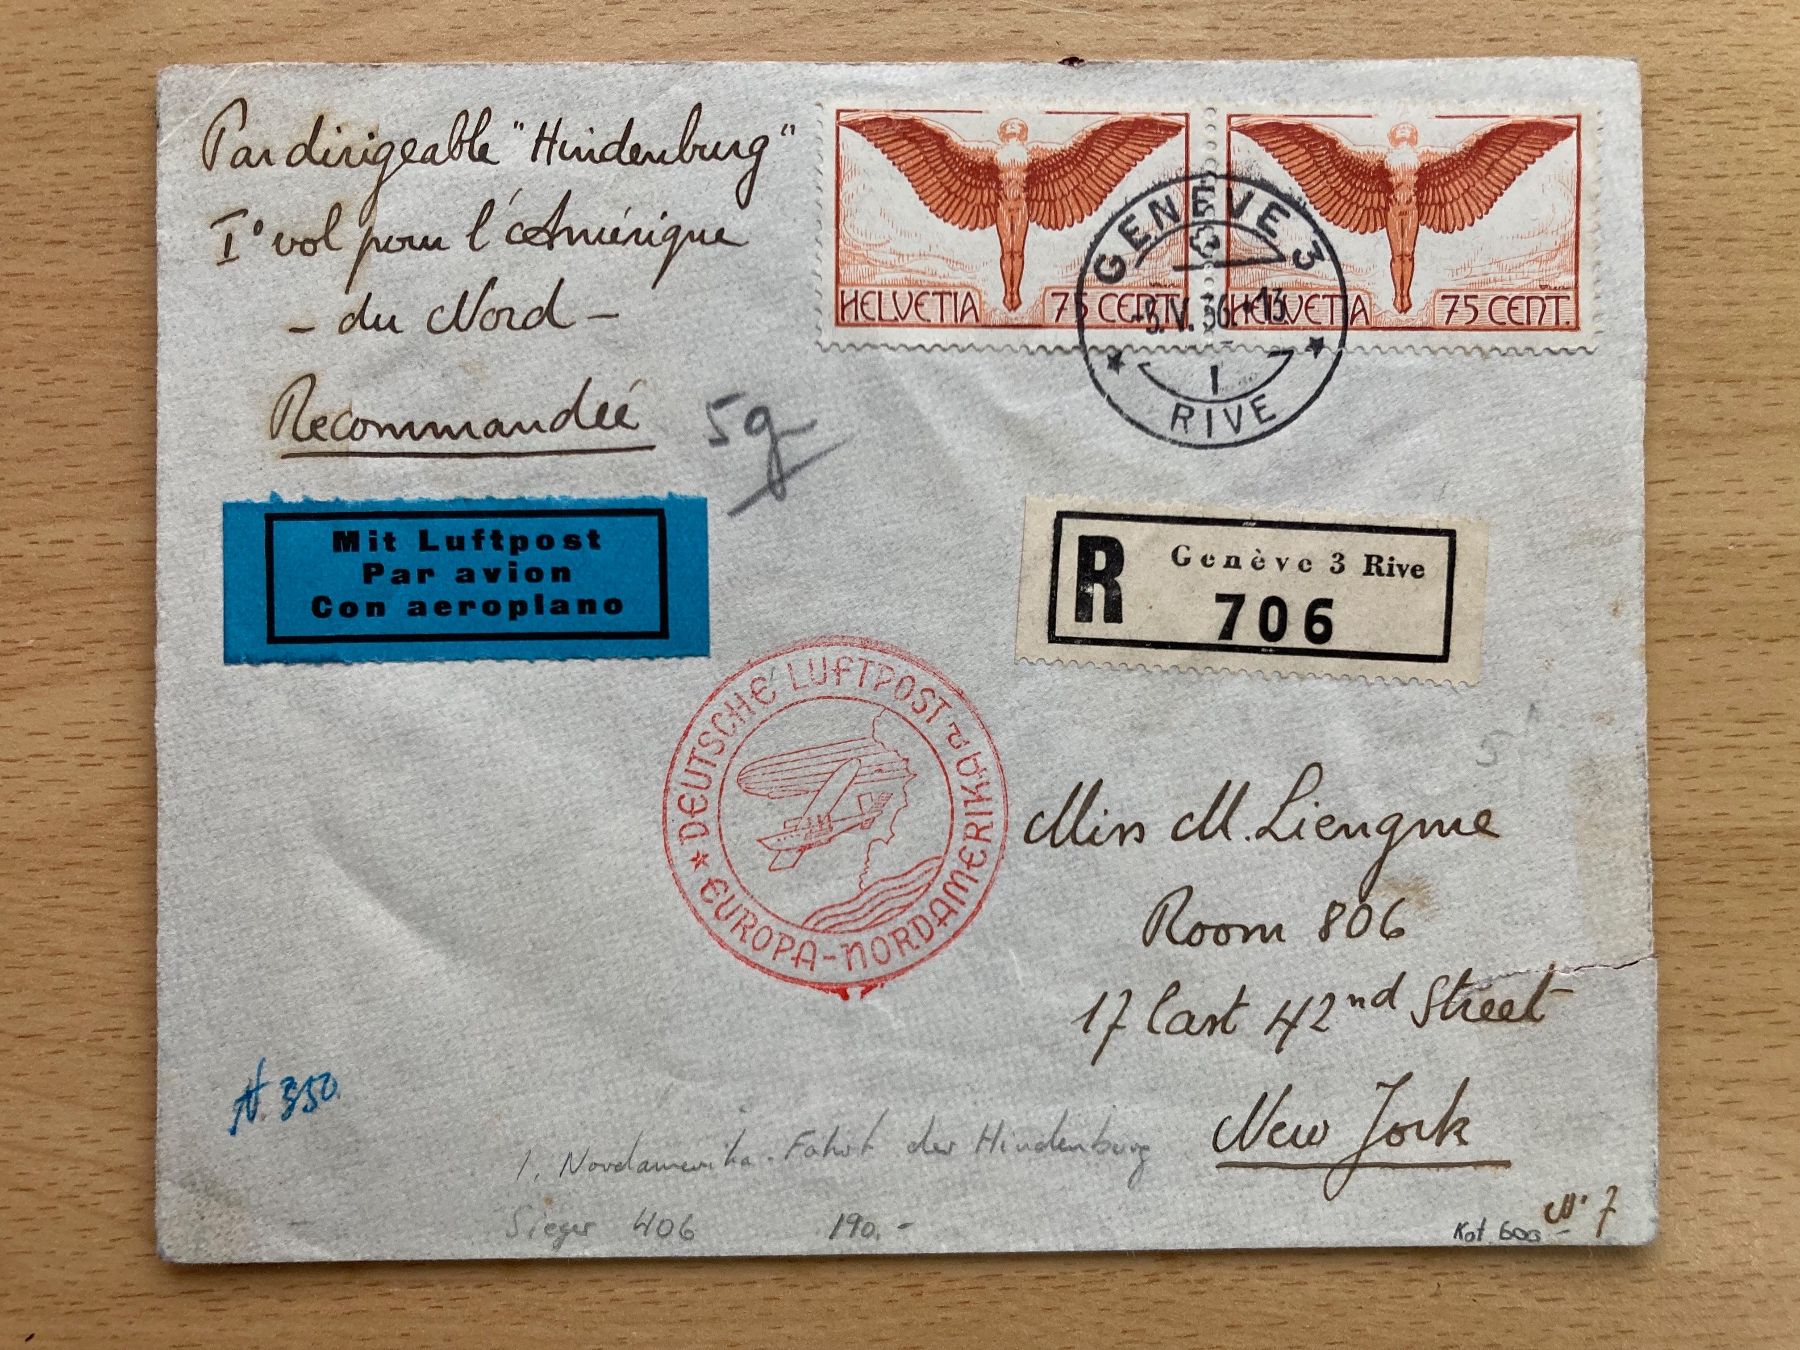 Par dirigeable "Hindenburg"
I° vol pour l'Amérique
- du Nord -
Recommandée
5g
HELVETIA 75 CENT.
HELVETIA 75 CENT.
GENÈVE 3
-5.V.36.-13
1
RIVE
Mit Luftpost
Par avion
Con aeroplano
R Genève 3 Rive
706
DEUTSCHE LUFTPOST
EUROPA-NORDAMERIKA
Miss M. Liengme
Room 806
17 East 42nd Street
New York
350.
1. Nordamerika-Fahrt der Hindenburg
Sieger 406 190.-
Kat 600
N° 7